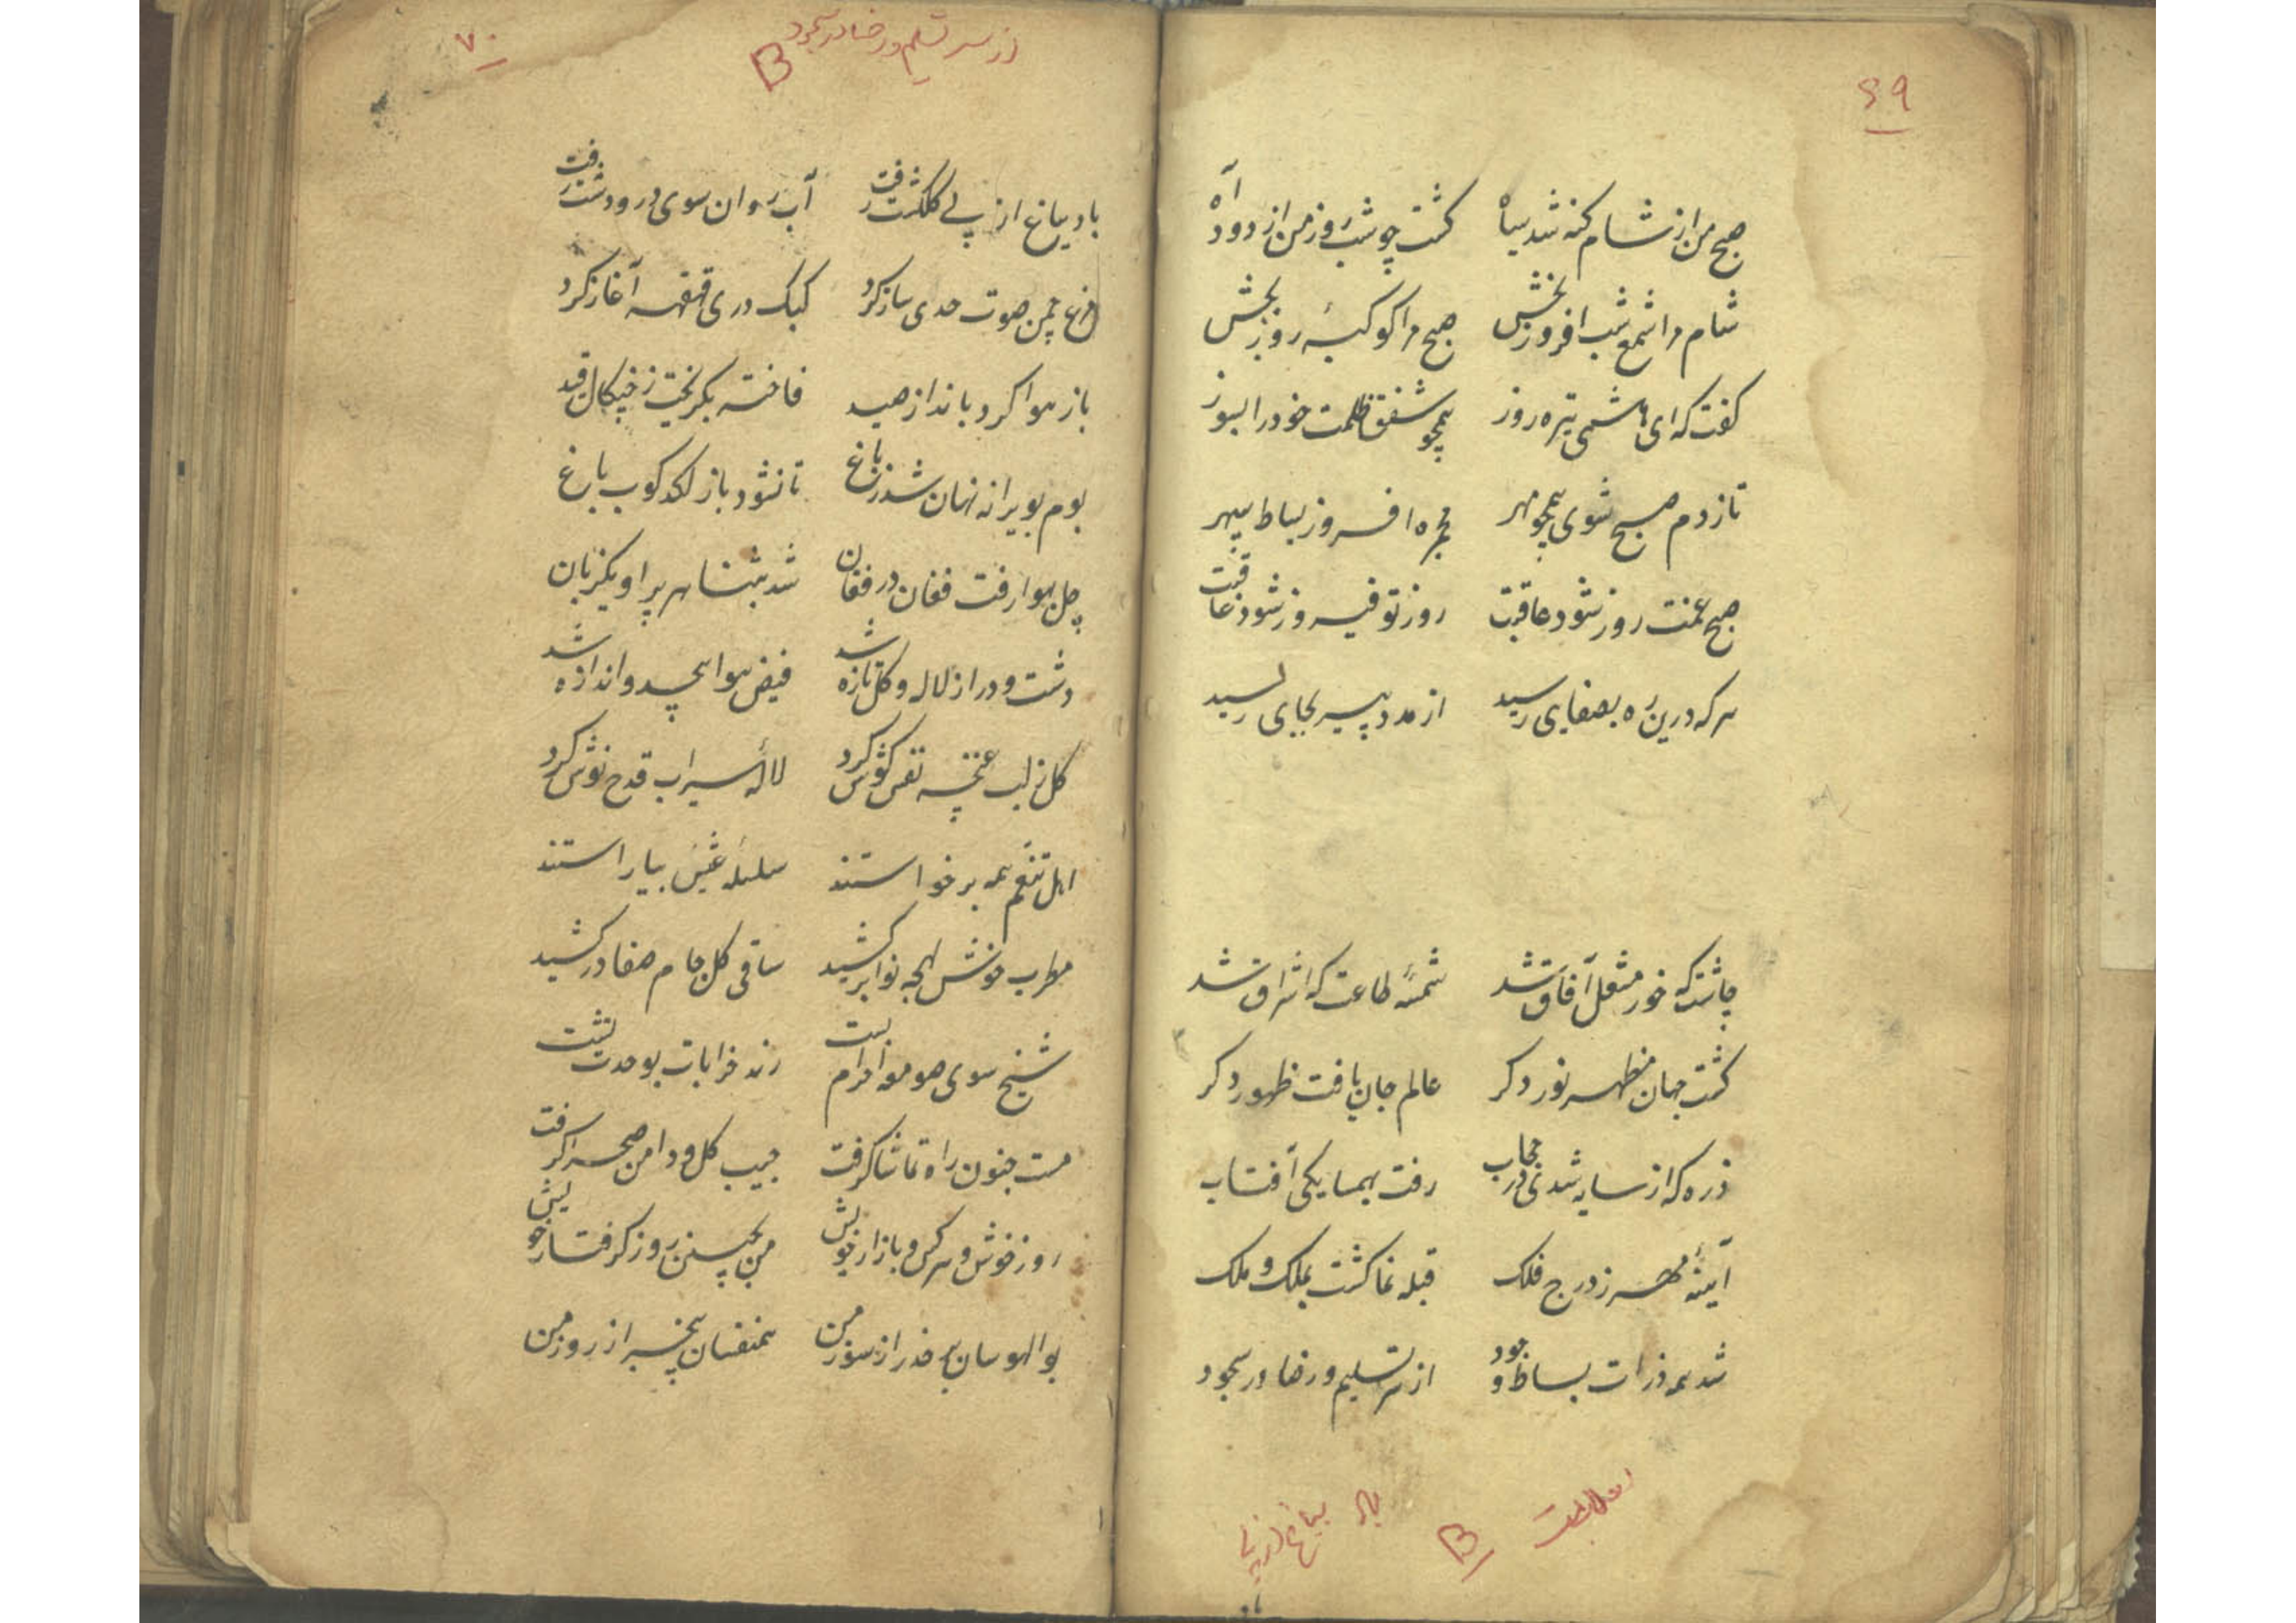 ۶۹
صبح من از شام کنه شد سیاه گشت چو شب روز من از دود آه
شام مرا شمع شب افروز بخش صبح مرا کوکبهٔ روز بخش
گفت که ای هاشمی تیره روز همچو شفق ظلمت خود را بسوز
تا ز دم صبح شوی همچو مهر مجمره افروز بساط سپهر
صبح غمت روز شود عاقبت روز تو فیروز شود عاقبت
هر که درین ره بصفایی رسید از مدد پیر بجایی رسید
چاشت که خور مشعل آفاق شد شمسهٔ طاعت که اشراق شد
گشت جهان مظهر نور دگر عالم جان یافت ظهور دگر
ذره که از سایه شدی در حجاب رفت بهمسایگی آفتاب
آیینهٔ مهر ز درج فلک قبله نما گشت بملک و ملک
شد همه ذرات بساط وجود از سر تسلیم و رضا در سجود
B
باد بباغ از پی
۷۰
از سر تسلیم و رضا در سجود
B
باد بباغ از پی گلگشت رفت آب روان سوی در و دشت رفت
مرغ چمن صوت حدی ساز کرد کبک دری قهقهه آغاز کرد
باز هوا کرد بانداز صید فاخته بگریخت ز چنگال قید
بوم بویرانه نهان شد ز باغ تا نشود باز لگدکوب باغ
چل بهوا رفت فغان در فغان شد بثنا هر پر او یکزبان
دشت و در از لاله و گل تازه شد فیض هوا بیحد و اندازه شد
گل ز لب غنچه نفس گوش کرد لالهٔ سیراب قدح نوش کرد
اهل تنعم همه برخواستند سلسله عیش بیاراستند
مطرب خوش لهجه نوا برکشید ساقی گل جام صفا درکشید
شیخ سوی صومعه احرام بست رند خرابات بوحدت نشست
مست جنون راه تماشا گرفت جیب گل و دامن صحرا گرفت
روز خوش و هر کس و بازار خویش من بچنین روز گرفتار خویش
بوالهوسان بر حذر از سوز من همنفسان بیخبر از روز من